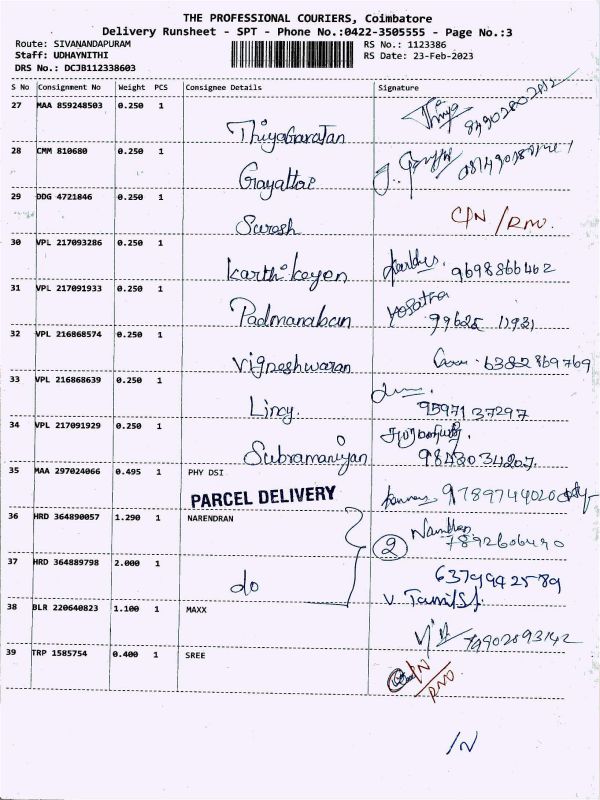 THE PROFESSIONAL COURIERS, Coimbatore
Delivery Runsheet - SPT - Phone No.:0422-3505555 - Page No.:3
Route: SIVANANDAPURAM
Staff: UDHAYNITHI
DRS No.: DCJB112338603
RS No.: 1123386
RS Date: 23-Feb-2023
S No Consignment No Weight PCS Consignee Details Signature
27 MAA 859248503 0.250 1
Thiyagarajan
28 CMM 810680 0.250 1
Gayathri
29 DDG 4721846 0.250 1
Suresh C/N / RNO.
30 VPL 217093286 0.250 1
Karthikeyen 9698866462
31 VPL 217091933 0.250 1
Padmanaban 99625 11931
32 VPL 216868574 0.250 1
Vigneshwaran 6382869769
33 VPL 216868639 0.250 1
Lincy. 9597137297
34 VPL 217091929 0.250 1
Subramaniyan 9843034207.
35 MAA 297024066 0.495 1 PHY DSI
PARCEL DELIVERY 9789744020
36 HRD 364890057 1.290 1 NARENDRAN
2 7892606490
37 HRD 364889798 2.000 1
do 6379942589
38 BLR 220640823 1.100 1 MAXX
39 TRP 1585754 0.400 1 SREE
C/N
RNO.
/N